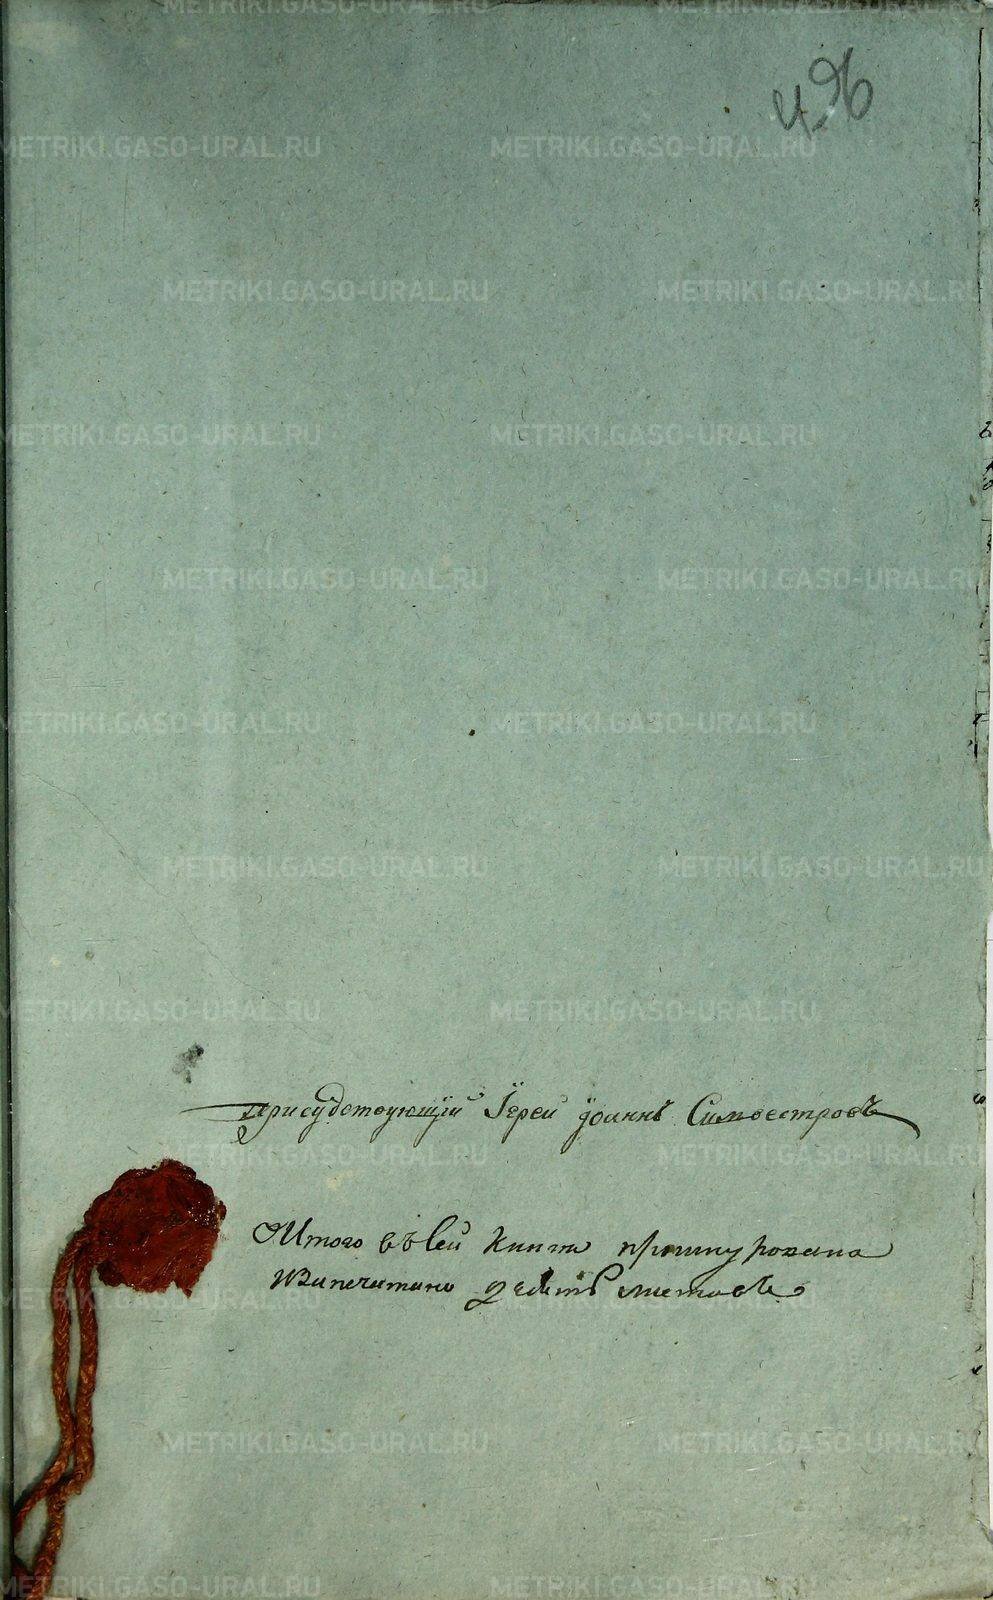 496
присудствующїй Їерей Їоаннъ Симвестровъ
Итого въ сей книги прошнурована
изапечатано девять листовъ
METRIKI.GASO-URAL.RU